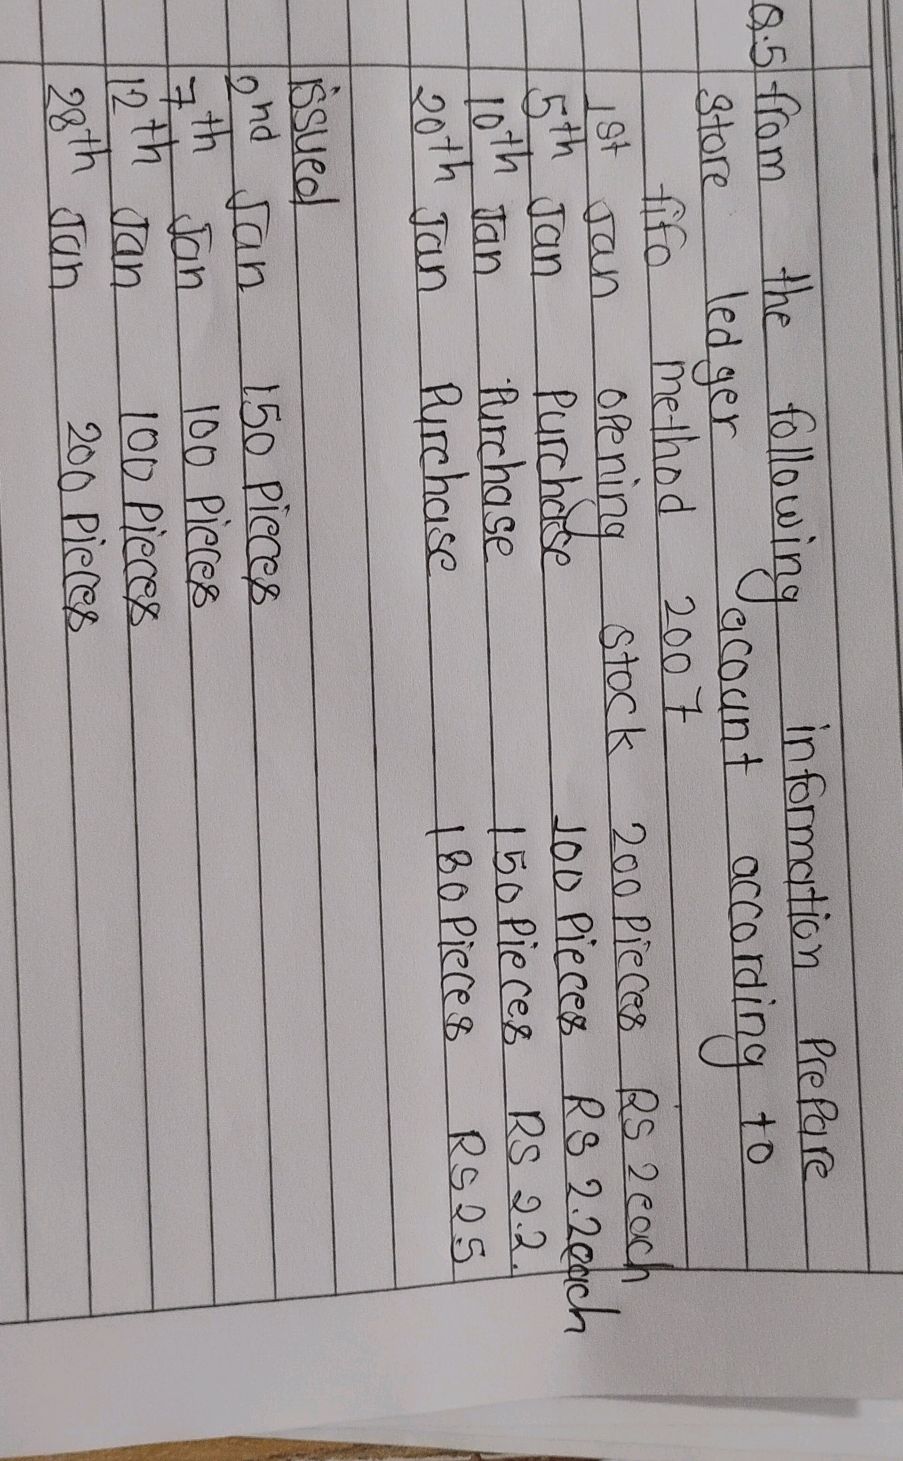 Q.5 from the following information Prepare
store ledger acount according to
fifo method 2007
1st Jan opening stock 200 Pieces RS 2 each
5th Jan Purchase 100 Pieces RS 2.2 each
10th Jan Purchase 150 Pieces RS 2.2.
20th Jan Purchase 180 Pieces RS 25
issued
2nd Jan 150 Pieces
7th Jan 100 Pieces
12th Jan 100 Pieces
28th Jan 200 Pieces